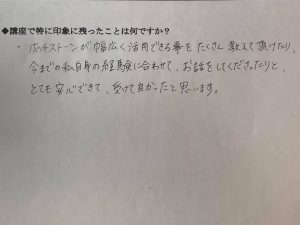 ◆講座で特に印象に残ったことは何ですか？
・ホットストーンが幅広く活用できる事をたくさん教えて頂けたり、
今までの私自身の経験に合わせて、お話をしてくださったりと、
とても安心できて、受けて良かったと思います。